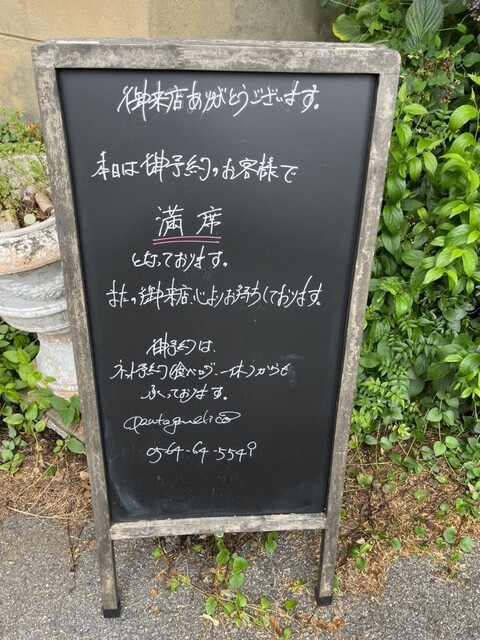 御来店ありがとうございます。
本日は御予約のお客様で
満席
となっております。
またの御来店、心よりお待ちしております。
御予約は、
ネット予約(食べログ、一休)からも
承っております。
0564-64-5549